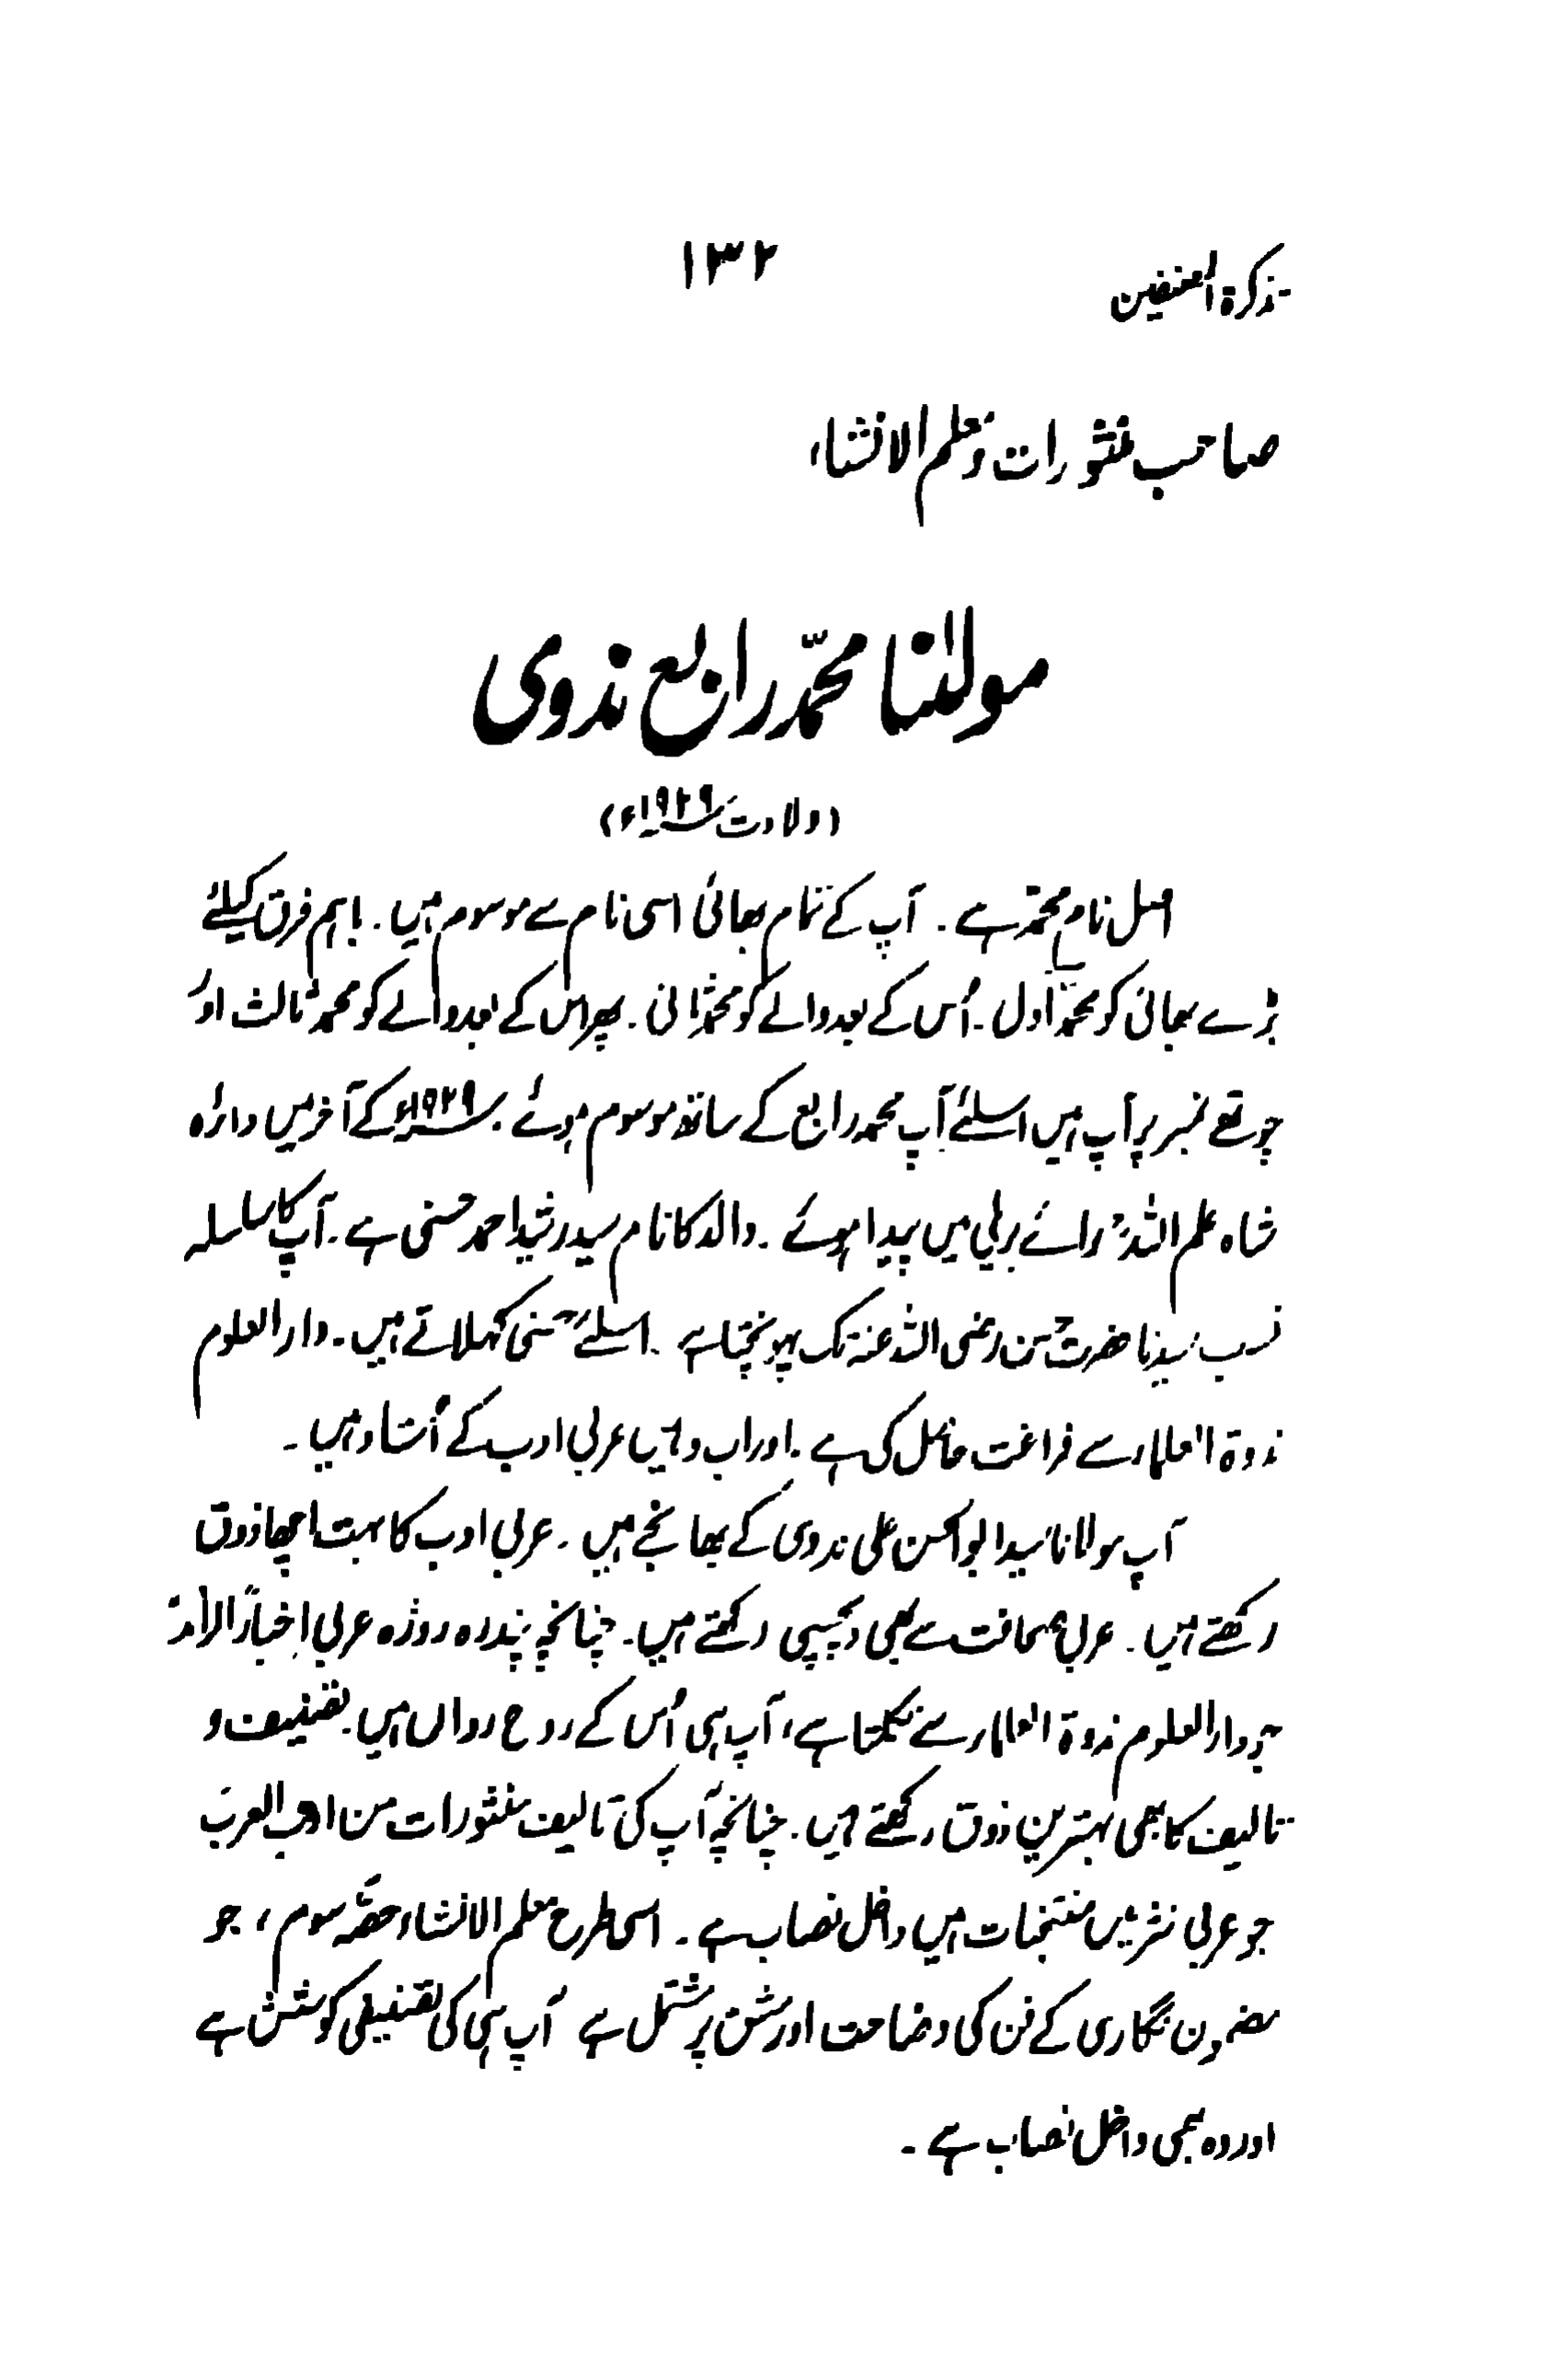 تذکرة المصنفین
۱۳۲
صاحب منثورات و معلم الانشاء
مولٰنا محمّد رابع ندوی
(ولادت ۱۹۲۹ء)
اصل نام محمد ہے ۔ آپ کے تمام بھائی اسی نام سے موسوم ہیں ۔ باہم فرق کیلئے
بڑے بھائی کو محمد اول ۔ اُس کے بعد والے کو محمد ثانی ۔ پھر اس کے بعد والے کو محمد ثالث اور
چوتھے نمبر پر آپ ہیں اسلئے آپ محمد رابع کے ساتھ موسوم ہوئے ۔ ۱۹۲۹ء کے آخر میں دائرہ
شاہ علم اللہؒ رائے بریلی میں پیدا ہوئے ۔ والد کا نام سید رشید احمد حسنی ہے ۔ آپ کا سلسلہ
نسب سیدنا حضرت حسن رضی اللہ عنہ تک پہونچتا ہے ۔ اسلئے حسنی کہلاتے ہیں ۔ دار العلوم
ندوة العلماء سے فراغت حاصل کی ہے ۔ اور اب وہیں عربی ادب کے اُستاد ہیں ۔
آپ مولانا سید ابو الحسن علی ندوی کے بھانجے ہیں ۔ عربی ادب کا بہت اچھا ذوق
رکھتے ہیں ۔ عربی صحافت سے بھی دلچسپی رکھتے ہیں ۔ چنانچہ پندرہ روزہ عربی اخبار الرائد
جو دار العلوم ندوة العلماء سے نکلتا ہے ، آپ ہی اُس کے روح رواں ہیں ۔ تصنیف و
تالیف کا بھی بہترین ذوق رکھتے ہیں ۔ چنانچہ آپ کی تالیف منثورات من ادب العرب
جو عربی نثر میں منتخبات ہیں داخل نصاب ہے ۔ اسی طرح معلم الانشاء حصّہ سوم ، جو
مضمون نگاری کے فن کی وضاحت اور مشق پر مشتمل ہے آپ ہی کی تصنیفی کوشش ہے
اور وہ بھی داخل نصاب ہے ۔